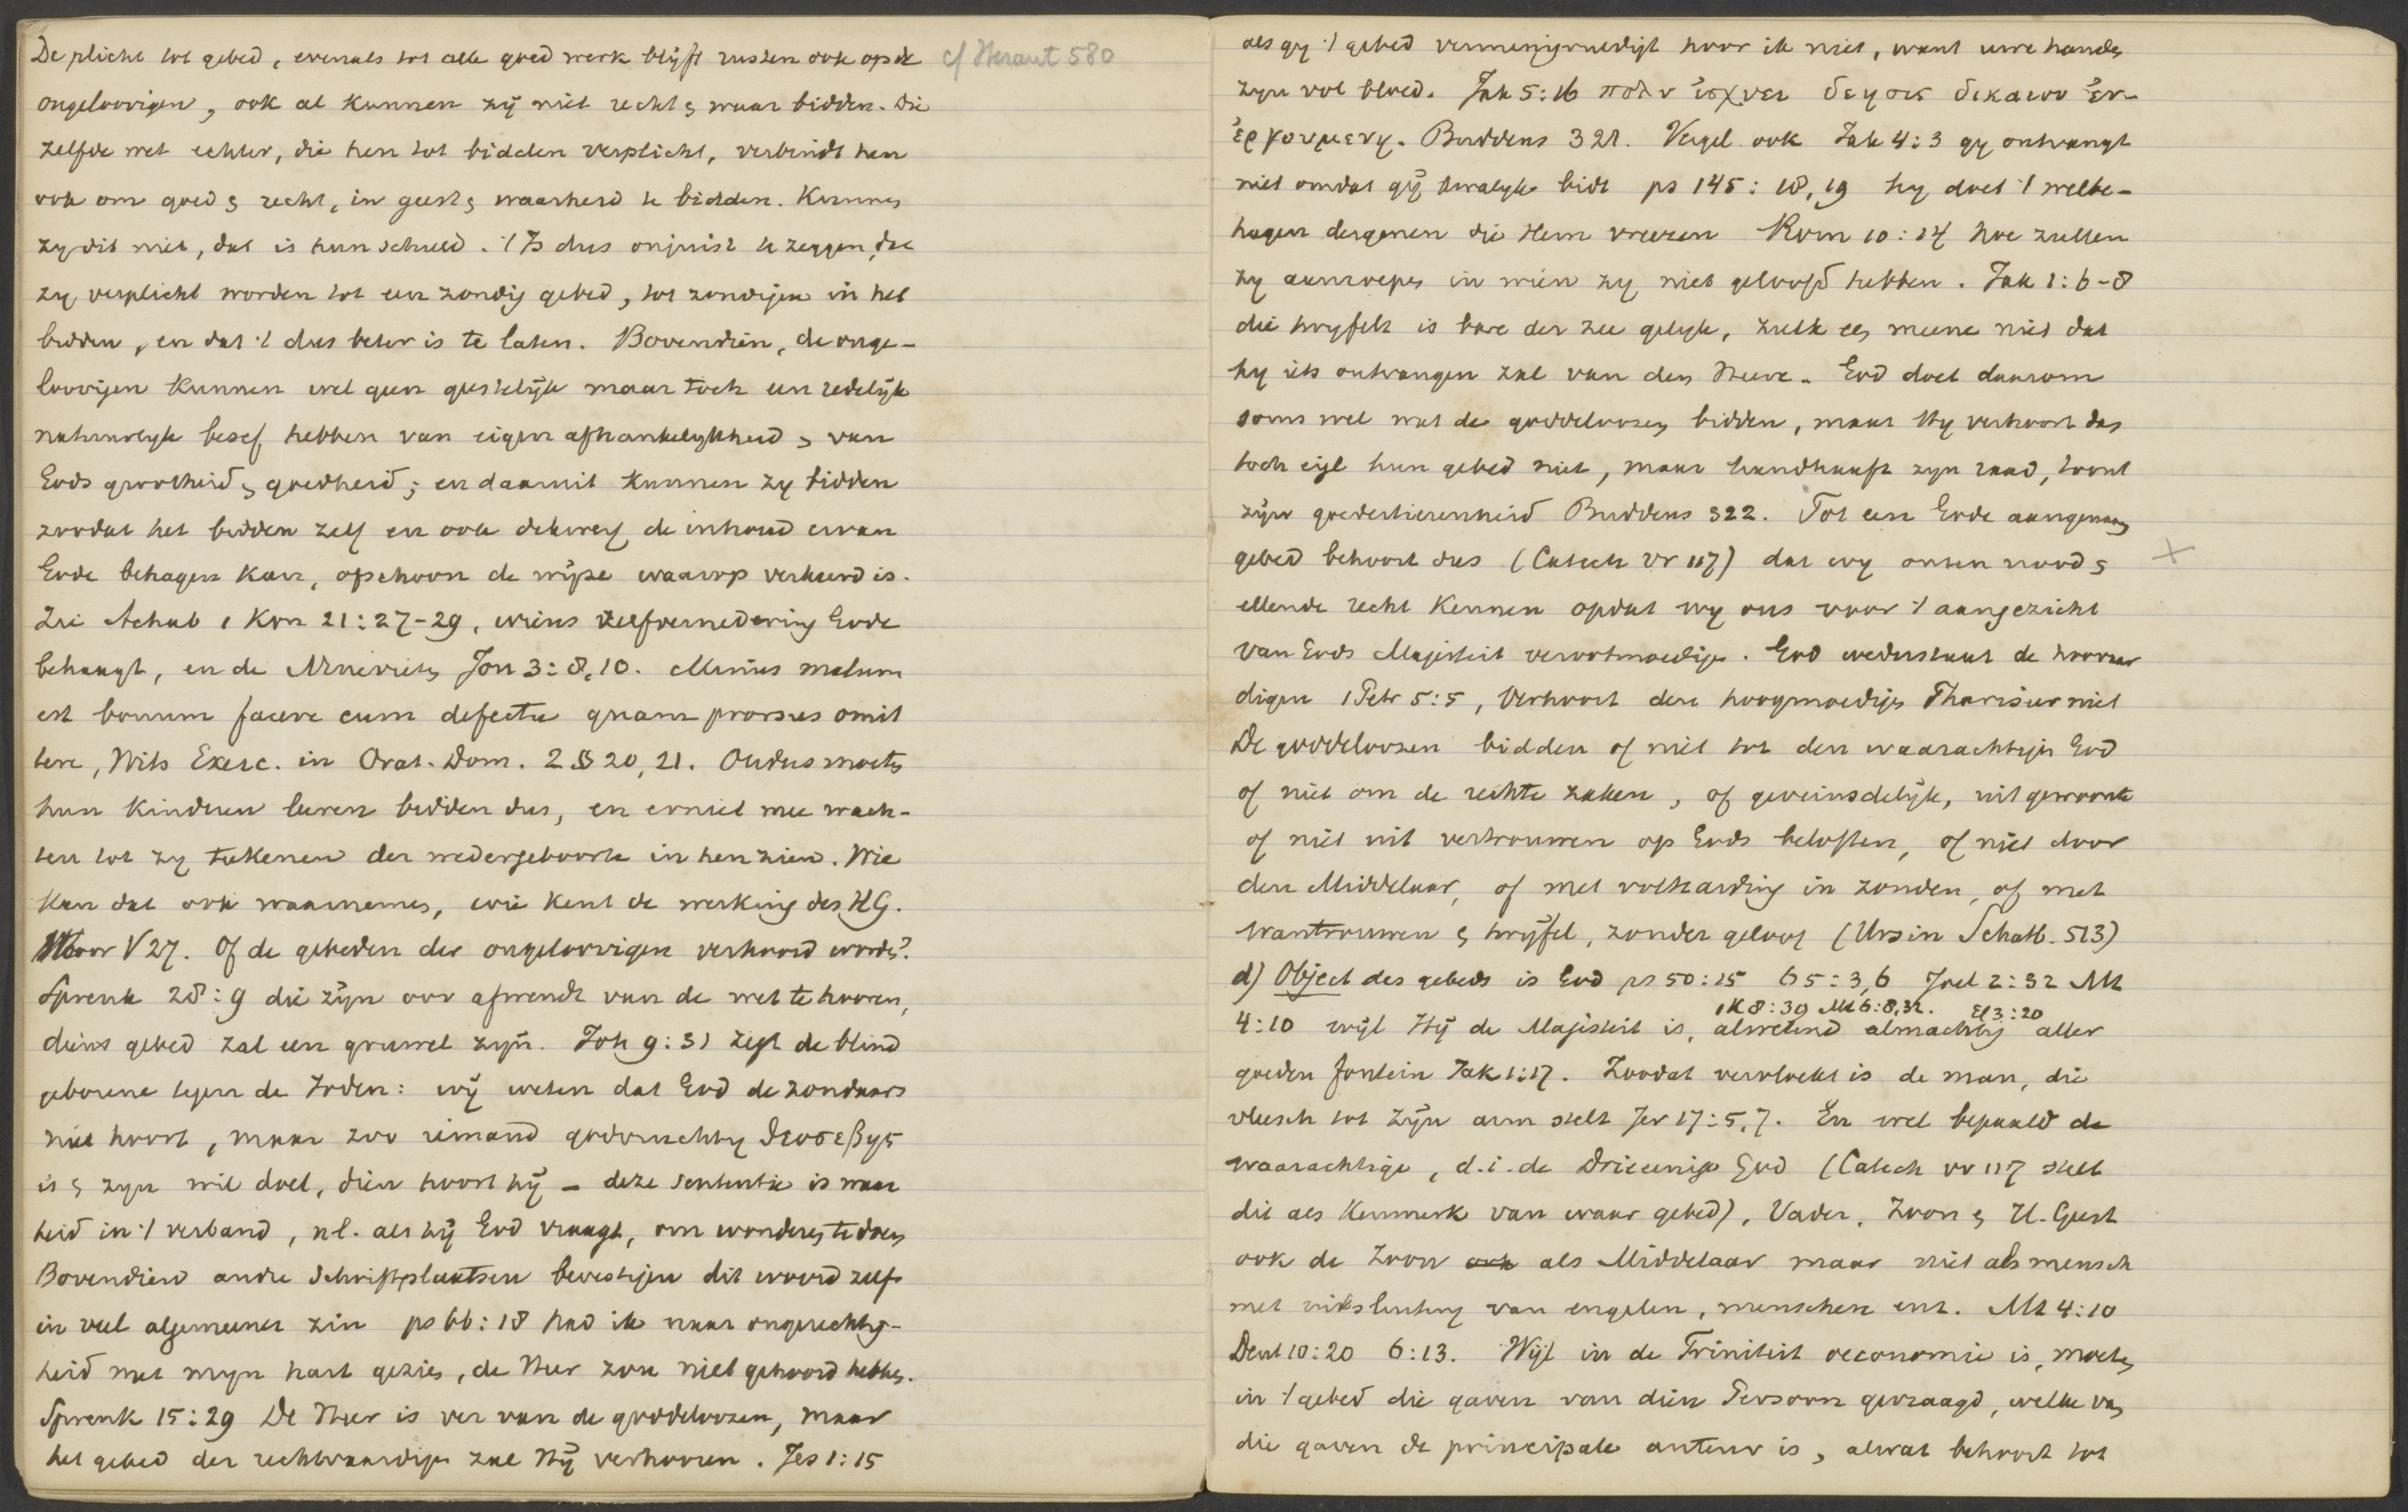 De plicht tot gebed, evenals tot alle goed werk blijft rusten ook op de
cf Heraut 580
ongeloovigen, ook al kunnen zij niet recht & waar bidden. Die
zelfde wet echter, die hen tot bidden verplicht, verbindt hen
ook om goed & recht, in geest & waarheid te bidden. Kunnen
zy dit niet, dat is hun schuld. 't Is dus onjuist te zeggen, dat
zy verplicht worden tot een zondig gebed, tot zondigen in het
bidden, en dat 't dus beter is te laten. Bovendien, de onge-
loovigen kunnen wel geen geestelijk maar toch een redelijk
natuurlyk besef hebben van eigen afhankelykheid & van
Gods grootheid & goedheid; en daaruit kunnen zy bidden
zoodat het bidden zelf en ook dikwerf de inhoud ervan
Gode behagen kan, ofschoon de wijze waarop verkeerd is.
Zie Achab 1 Kon 21:27-29, wiens zelfvernedering Gode
behaagt, en de Ninevieten Jon 3:8,10. Minus malum
est bonum facere cum defectu quam prorsus omit
tere, Wits Exerc. in Orat. Dom. 2 § 20, 21. Ouders moeten
hun kinderen leeren bidden dus, en er niet mee wach-
ten tot zy teekenen der wedergeboorte in hen zien. Wie
kan dat ook waarnemen, wie kent de werking des HG.
Voor V 27. Of de gebeden der ongeloovigen verhoord worden?
Spreuk 28:9 die zijn oor afwendt van de wet te hooren,
diens gebed zal een gruwel zijn. Joh 9:31 zegt de blind
geborene tegen de Joden: wij weten dat God de zondaars
niet hoort, maar zoo iemand godvruchtig θεοσεβης
is & zyn wil doet, dien hoort hij – deze sententie is waar
heid in 't verband, nl. als hij God vraagt, om wonderen te doen
Bovendien andre Schriftplaatsen bevestigen dit woord zelfs
in veel algemeener zin ps 66:18 had ik naar ongerechtig-
heid met myn hart gezien, de Heer zou niet gehoord hebben.
Spreuk 15:29 De Heer is ver van de goddeloozen, maar
het gebed der rechtvaardigen zal Hij verhooren. Jes 1:15
als gy 't gebed vermenigvuldigt hoor ik niet, want uwe handen
zyn vol bloed. Jak 5:16 πολυ ἰσχυει δεησις δικαιου ἐν-
ἐργουμενη. Buddeus 321. Vergel ook Jak 4:3 gy ontvangt
niet omdat gij kwalyk bidt ps 145:18,19 hy doet 't welbe-
hagen dergenen die Hem vreezen Rom 10:14 hoe zullen
zy aanroepen in wien zy niet geloofd hebben. Jak 1:6-8
die twyfelt is bare der zee gelyk, zulk een meene niet dat
hy iets ontvangen zal van den Heere. God doet daarom
soms wel wat de goddeloozen bidden, maar Hy verhoort dan
toch eigl hun gebed niet, maar handhaaft zyn raad, toont
zijn goedertierenheid Buddeus 322. Tot een Gode aangenaam
gebed behoort dus (Catech vr 117) dat wy onzen nood &
ellende recht kennen opdat wy ons voor 't aangezicht
van Gods Majesteit verootmoedigen. God wederstaat de hoovaar
digen 1 Petr 5:5, verhoort den hoogmoedigen Pharizeer niet
De goddeloozen bidden of niet tot den waarachtigen God
of niet om de rechte zaken, of geveinsdelijk, uit gewoonte
of niet uit vertrouwen op Gods beloften, of niet door
den Middelaar, of met volharding in zonden, of met
wantrouwen & twijfel, zonder geloof (Ursin Schatb. 513)
d) Object des gebeds is God ps 50:15 65:3,6 Joel 2:32 Mt
1 K 8:39 Mt 6:8,32. Ef 3:20
4:10 wijl Hij de Majesteit is, alwetend almachtig aller
goeden fontein Jak 1:17. Zoodat vervloekt is de man, die
vleesch tot zijn arm stelt Jer 17:5,7. En wel bepaald de
waarachtige, d.i. de Drieenige God (Catech vr 117 stelt
dit als kenmerk van waar gebed), Vader, Zoon & H. Geest
ook de Zoon ook als Middelaar maar niet als mensch
met uitsluiting van engelen, menschen enz. Mt 4:10
Deut 10:20 6:13. Wijl in de Triniteit oeconomie is, moeten
in 't gebed die gaven van dien Persoon gevraagd, welke van
die gaven de principale auteur is, alwat behoort tot